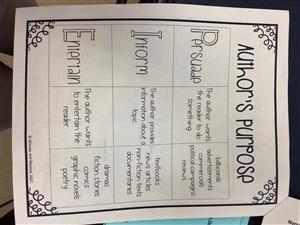 Author's Purpose
Persuade
The author wants
the reader to do
something.
billboards
advertisements
commercials
political campaigns
reviews
Inform
The author provides
information about a
topic
textbooks
news articles
non-fiction texts
documentaries
Entertain
The author wants
to entertain the
reader
dramas
fiction stories
comics
graphic novels
poetry